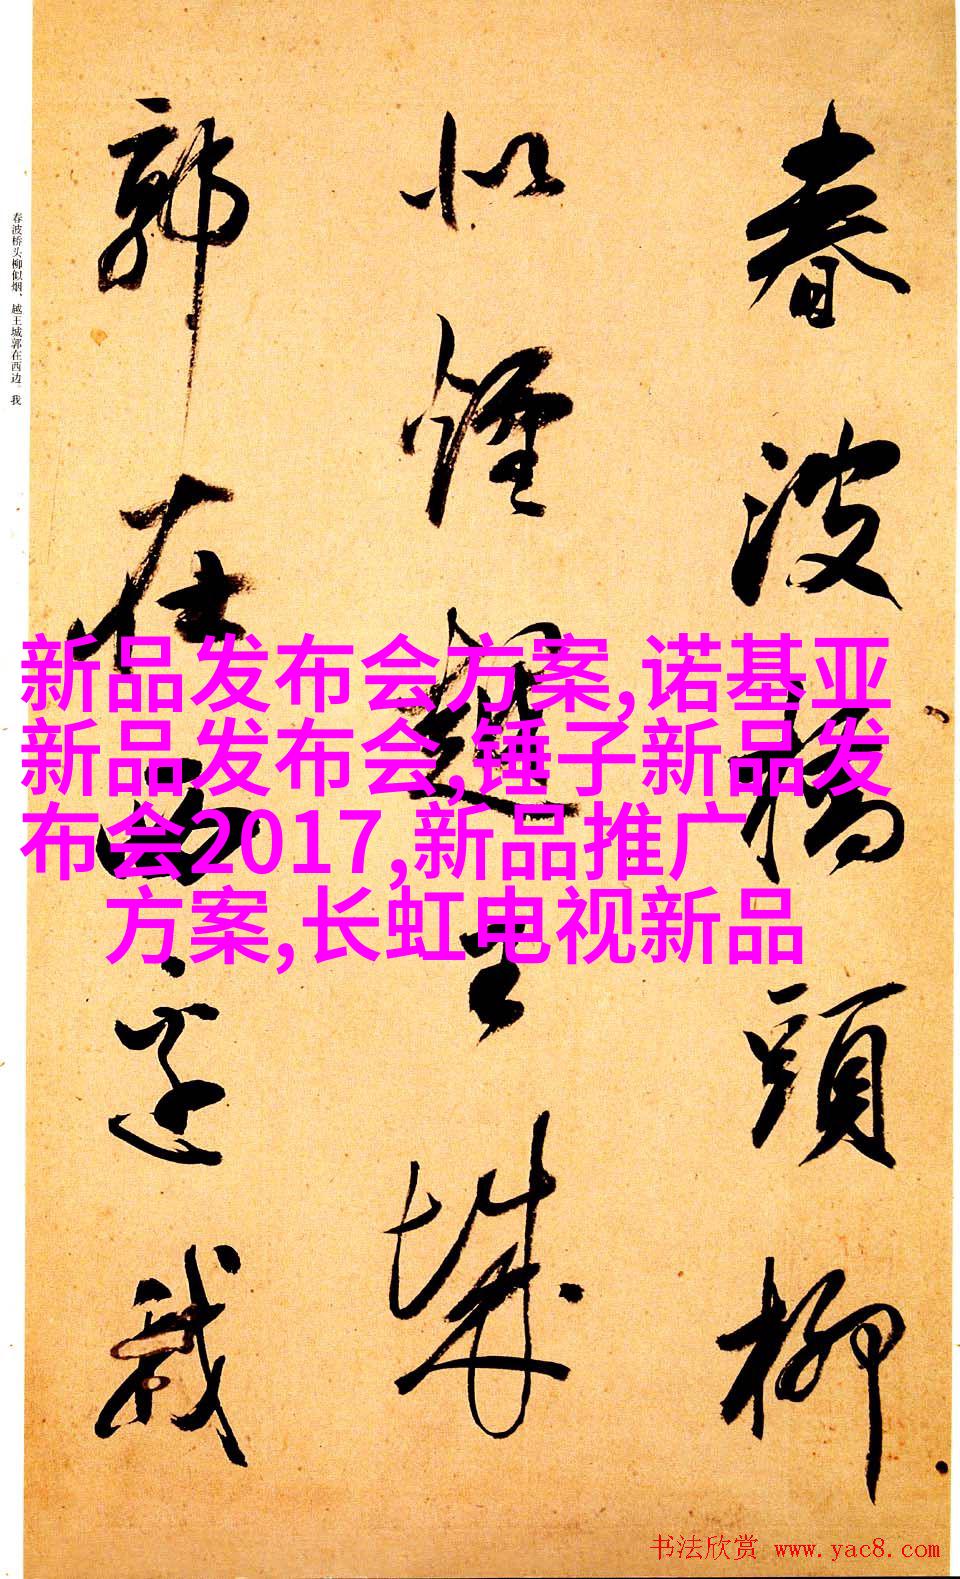 春波橋頭柳
似煙越王城
郭在西邊我
春波桥头柳似烟，越王城郭在西边。我
新品发布会方案,诺基亚
新品发布会,锤子新品发
布会2017,新品推广
方案,长虹电视新品
书法欣赏 www.yac8.com